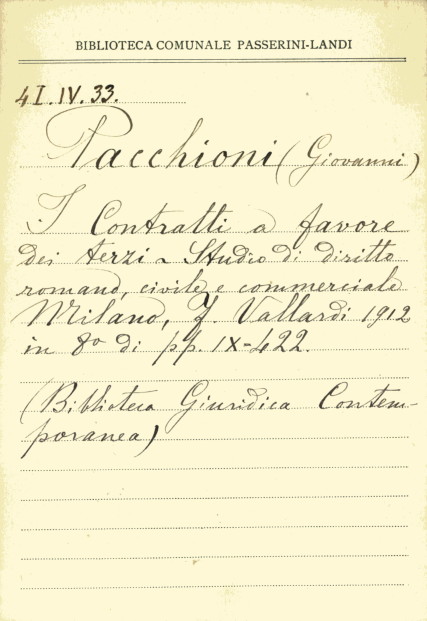 BIBLIOTECA COMUNALE PASSERINI-LANDI
4I.IV.33.
Pacchioni (Giovanni)
I Contratti a favore
dei terzi - Studio di diritto
romano, civile e commerciale
Milano, F. Vallardi 1912
in 8º di pp. IX-422.
(Biblioteca Giuridica Contem-
poranea)